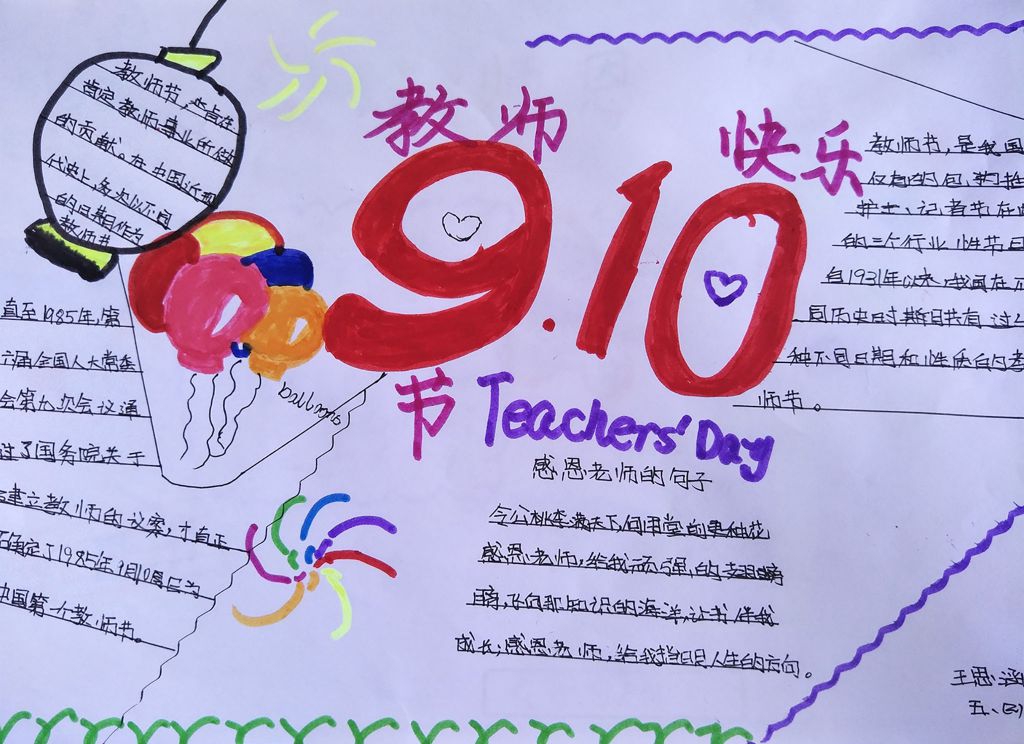 教师节快乐
9.10
Teachers' Day
教师节,旨在
肯定教师事业所做
的贡献。在中国近现
代史上,多次以不同
的日期作为
教师节
直至1985年,第
六届全国人大常委
会第九次会议通
过了国务院关于
建立教师的议案,才真正
确定了1985年9月10日为
中国第一个教师节。
教师节,是我国
仅有的包括
护士、记者节在
的三个行业性节日
自1931年以来,我国在不
同历史时期共有过
种不同日期和性质的教
师节。
感恩老师的句子
令公桃李满天下,何用堂前更种花
感恩老师,给我顽强的翅膀
飞向那知识的海洋,让书伴我
成长;感恩老师,给我指明人生的方向。
王思涵
五、(2)